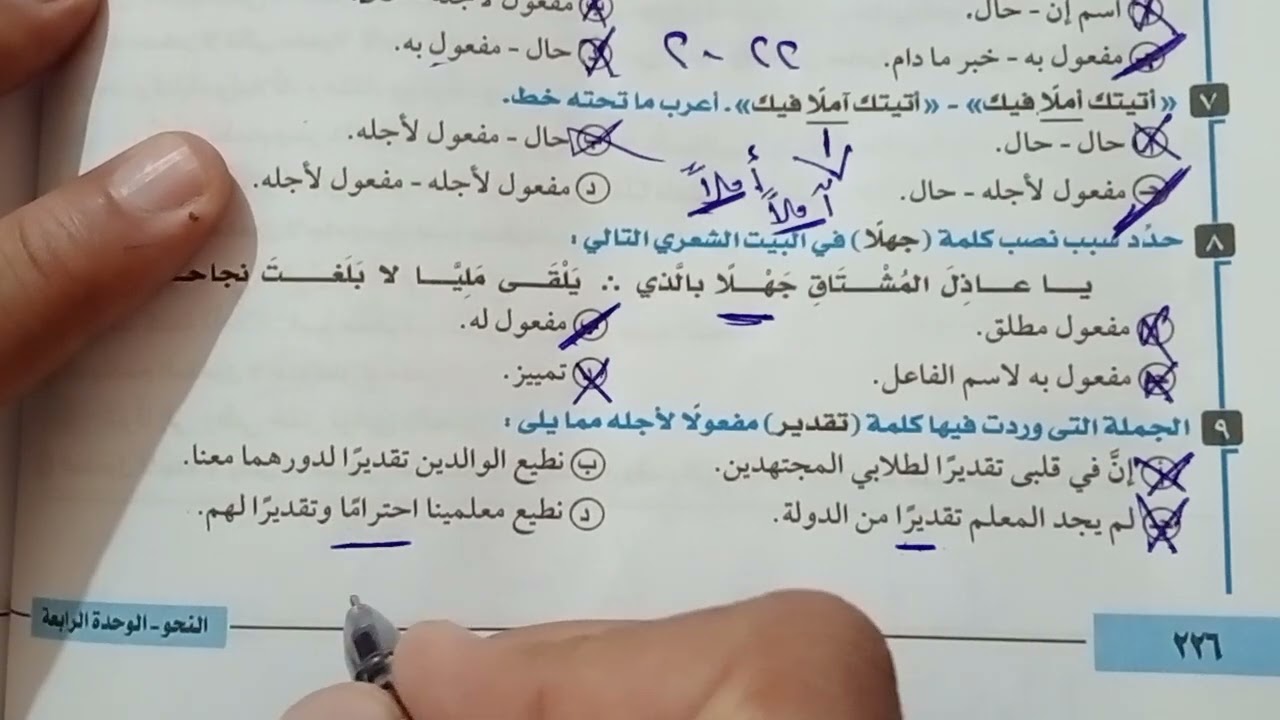 أ اسم إن - حال. مفعول لأجله -
ج مفعول به - خبر ما دام. د حال - مفعول به.
٢٠٢٢
٧ «أتيتك أملًا فيك» - «أتيتك آملًا فيك». أعرب ما تحته خط.
أ حال - حال. ب حال - مفعول لأجله.
ج مفعول لأجله - حال. د مفعول لأجله - مفعول لأجله.
أملاً آملاً
٨ حدِّد سبب نصب كلمة (جهلًا) في البيت الشعري التالي:
يا عاذِلَ المُشْتَاقِ جَهْلًا بالَّذي ∴ يَلْقَى مَلِيًّا لا بَلَغتَ نجاحـ
أ مفعول مطلق. ب مفعول له.
ج مفعول به لاسم الفاعل. د تمييز.
٩ الجملة التى وردت فيها كلمة (تقدير) مفعولًا لأجله مما يلى:
أ إنَّ في قلبى تقديرًا لطلابي المجتهدين. ب نطيع الوالدين تقديرًا لدورهما معنا.
ج لم يجد المعلم تقديرًا من الدولة. د نطيع معلمينا احترامًا وتقديرًا لهم.
٢٢٦ النحو - الوحدة الرابعة